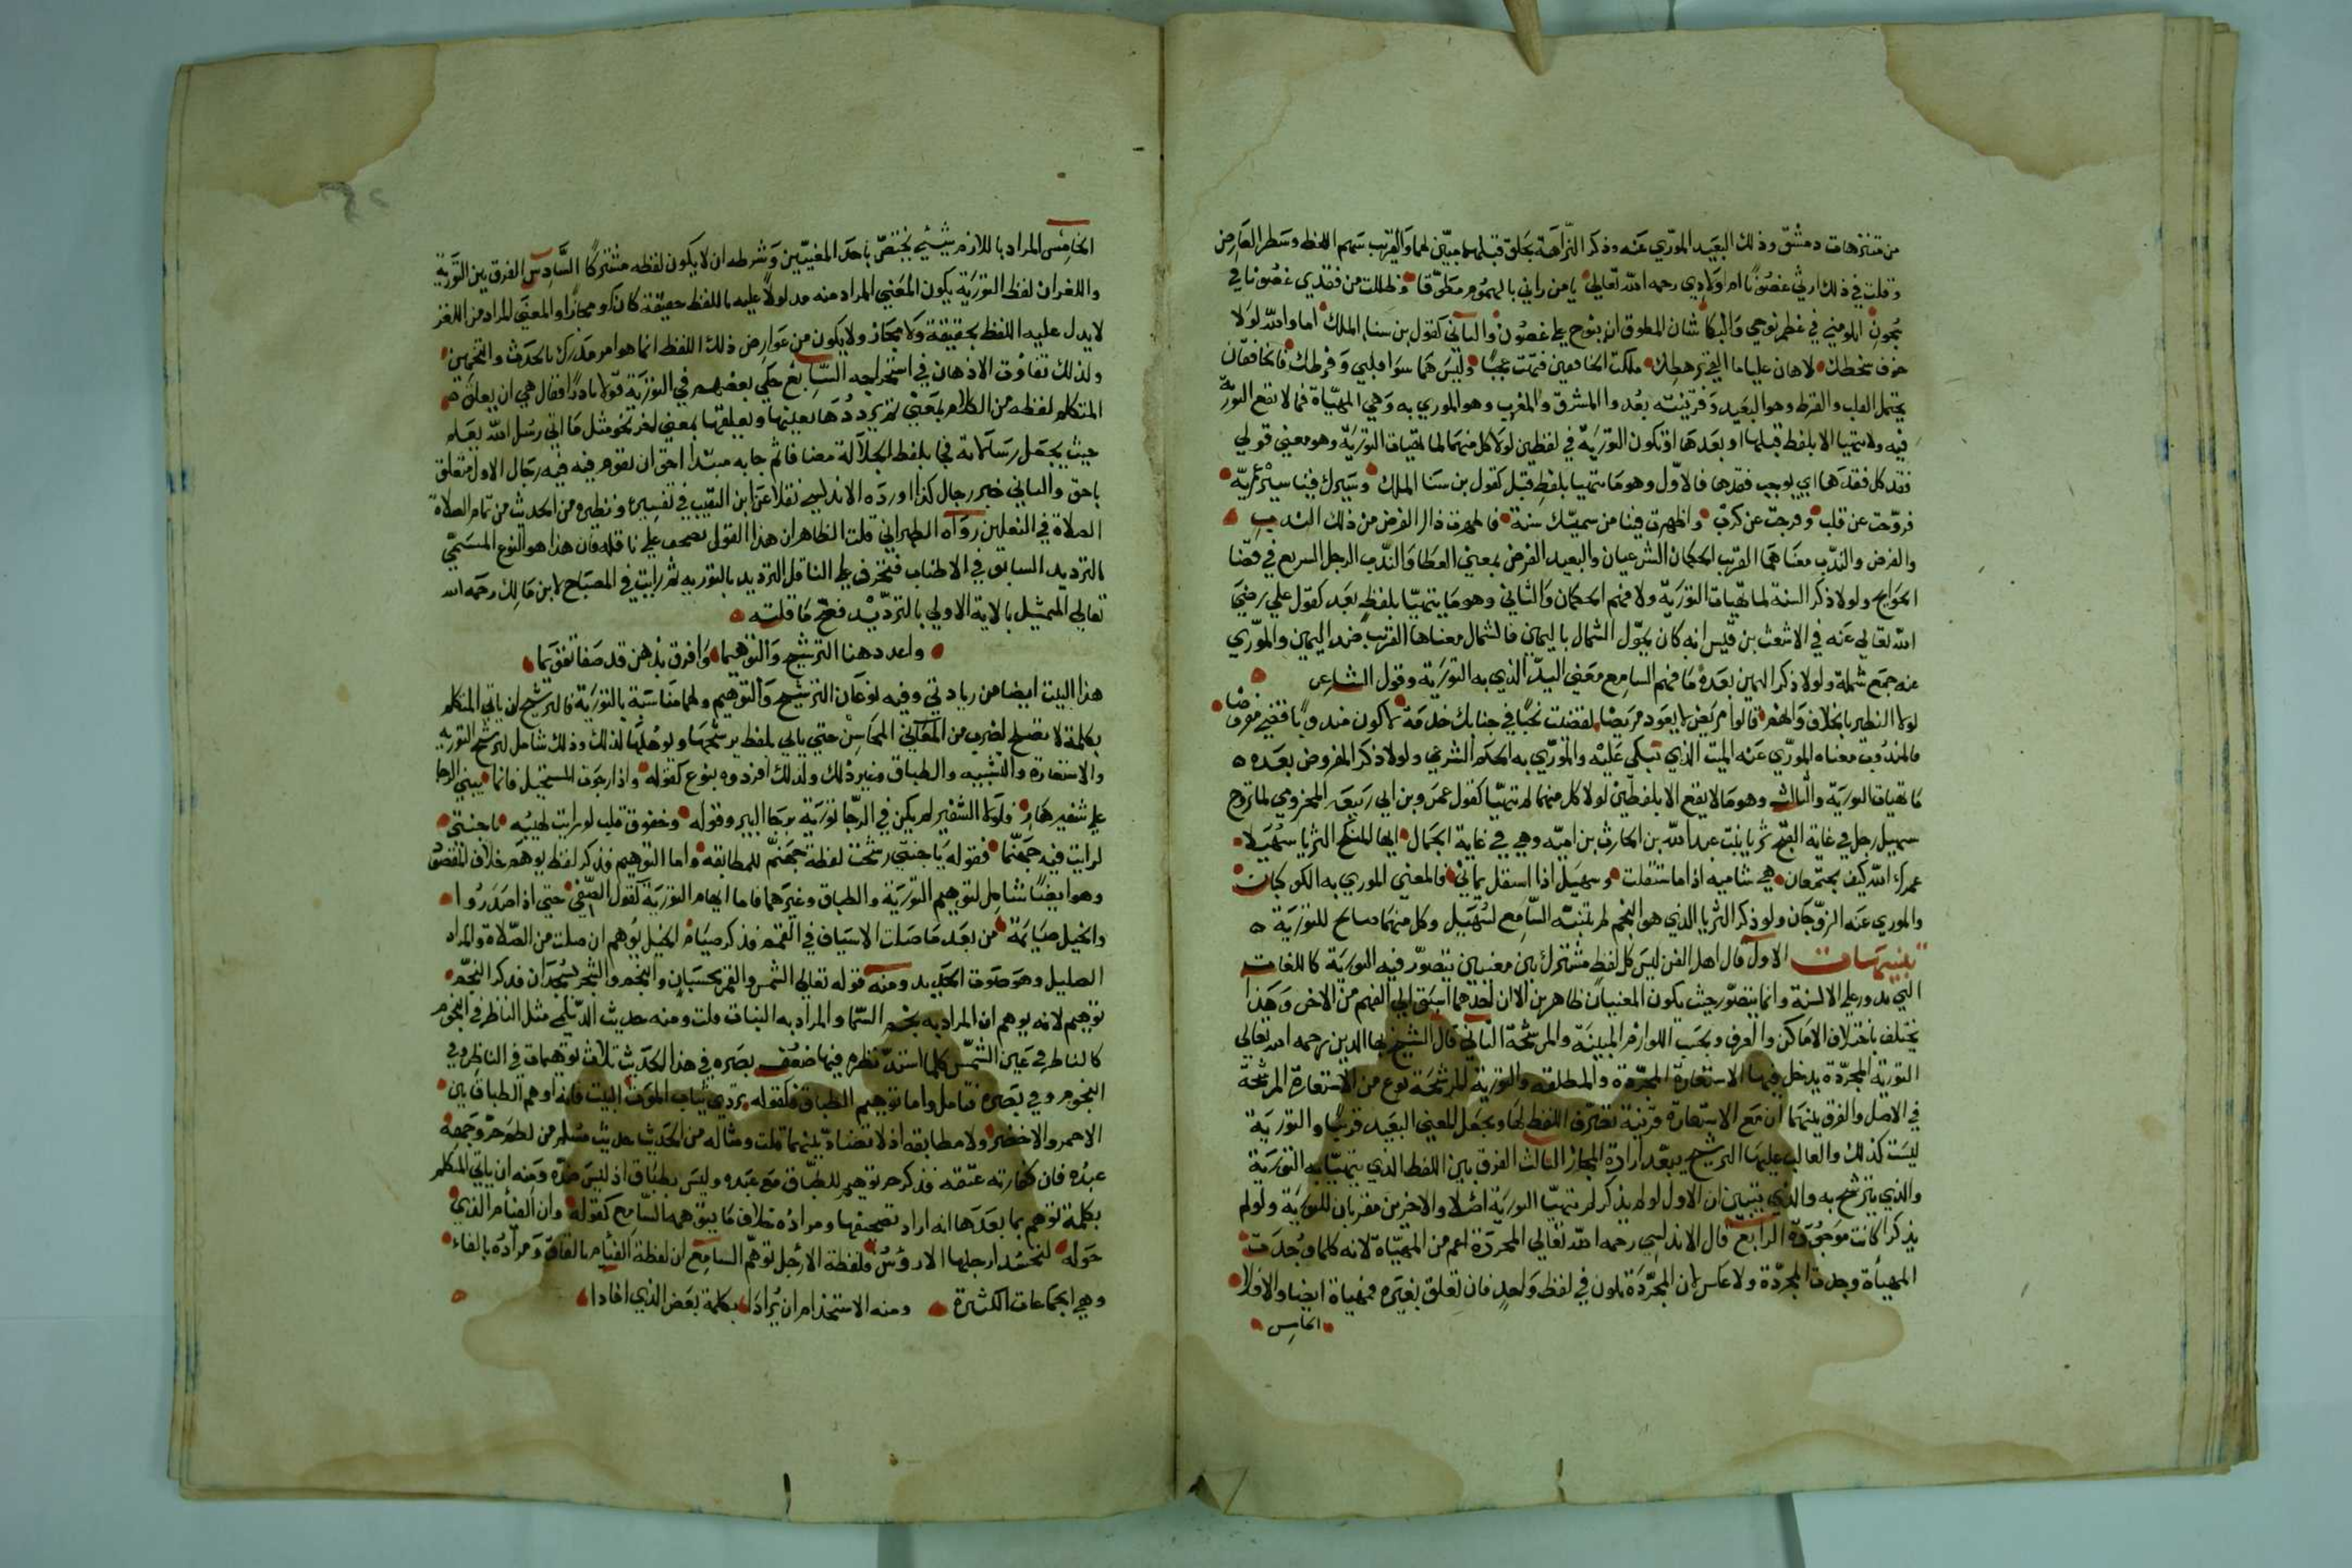 من متنزهات دمشق وذلك البعيد المورى عنه وذكر النزاهة بجلق قبلهما مبين لهما والقريب سهم اللفظ وسطر العارض
وقلت في ذلك ارثي غصونا ام اولادي رحمه الله تعالى يا من رآني بالهموم مطوقا وظللت من فقدي غصونا في
شجون اتلومني في عظم نوحي والبكا شان المطوق ان ينوح على غصون والثاني كقول بن سنا الملك اما والله لولا
خوف سخطك لهان علي ما القى برهطك ملكت الخافقين فتهت عجبا وليس هما سوى قلبي وقرطك فالخافقان
يحتمل القلب والقرط وهو البعيد وقرينته بعد والمشرق والمغرب وهو المورى به وهي المهيأة فما لا تقع التورية
فيه ولا تتهيا الا بلفظ قبلها او بعدها او تكون التورية في لفظين لولا كل منهما لما تهيات التورية وهو معنى قولي
فقد كل فقدهما اي يوجب فقدها فالاول وهو ما تتهيا بلفظ قبل كقول بن سنا الملك وسيرك فينا سيرة عمرية
فروحت عن قلب وفرجت عن كرب واظهرت فينا من سميك سنة فاظهرت ذاك الفرض من ذلك الندب
والفرض والندب معناهما القريب الحكمان الشرعيان والبعيد الفرض بمعنى العطا والندب الرجل السريع في قضا
الحوايج ولولا ذكر السنة لما تهيات التورية ولا فهم الحكمان والثاني وهو ما يتهيا بلفظ بعد كقول علي رضي
الله تعالى عنه في الاشعث بن قيس انه كان يحوك الشمال باليمين فالشمال معناها القريب ضد اليمين والمورى
عنه جمع شملة ولولا ذكر اليمين بعده ما فهم السامع معنى اليد الذي به التورية وقول الشاعر
لولا التطير بالخلاف وانهم قالوا مريض لا يعود مريضا لقضيت نحبا في جنابك خدمة لاكون مندوبا قضى مفروضا
فالمندوب معناه المورى عنه الميت الذي تبكى عليه والمورى به الحكم الشرعي ولولا ذكر المفروض بعده
ما تهيات التورية والثالث وهو ما لا يقع الا بلفظين لولا كل منهما لم تتهيا كقول عمر وبن ابي ربيعة المخزومي لما تزوج
سهيل رجل في غاية القبح ثريا بنت عبد الله بن الحارث بن امية وهي في غاية الجمال ايها المنكح الثريا سهيلا
عمرك الله كيف يجتمعان هي شامية اذا ما استقلت وسهيل اذا استقل يماني فالمعنى المورى به الكوكبان
والمورى عنه الزوجان ولو ذكر الثريا الذي هو النجم لم يتنبه السامع لسهيل وكل منهما صالح للتورية
تنبيهات الاول قال اهل الفن ليس كل لفظ مشترك بين معنيين تتصور فيه التورية كاللغات
التي تدور على الالسنة وانما يتصور حيث يكون المعنيان ظاهرين الا ان احدهما اسبق الى الفهم من الاخر وهذا
يختلف باختلاف الاماكن والعرف وبحسب اللوازم المبينة والمرشحة الثاني قال الشيخ بها الدين رحمه الله تعالى
التورية المجردة يدخل فيها الاستعارة المجردة والمطلقة والتورية المرشحة نوع من الاستعارة المرشحة
في الاصل والفرق بينهما ان مع الاستعارة قرينة تصرف اللفظ لها ويجعل المعنى البعيد قريبا والتورية
ليست كذلك والغالب عليها الترشيح ببعد ارادة المجاز الثالث الفرق بين اللفظ الذي يتهيا به التورية
والذي يترشح به والذي يتبين ان الاول لو لم يذكر لم تتهيا التورية اصلا والاخرين مقربان للتورية ولو لم
يذكرا كانت موجودة الرابع قال الاندلسي رحمه الله تعالى المجردة اعم من المهياة لانه كلما وجدت
المهيأة وجدت المجردة ولا عكس لان المجردة تكون في لفظ واحد فان تعلق بغيره فمهياة ايضا والا فلا
الخامس
الخامس المراد باللازم شيء يختص باحد المعنيين وشرطه ان لا يكون لفظه مشتركا السادس الفرق بين التورية
واللغز ان لفظ التورية يكون المعنى المراد منه مدلولا عليه باللفظ حقيقة كان او مجازا والمعنى المراد من اللغز
لا يدل عليه اللفظ بحقيقة ولا مجاز ولا يكون من عوارض ذلك اللفظ انما هو امر مدرك بالحدث والتخمين
ولذلك تفاوت الاذهان في استخراجه السابع حكي بعضهم في التورية قولا نادرا فقال هي ان يعلق
المتكلم لفظه من الكلام بمعنى ثم يرددها بعينها ويعلقها بمعنى اخر نحو مثل ما اتي رسل الله الله يعلم
حيث يجعل رسالاته فجا بلفظ الجلالة مضافا ثم جا به مبتدا احق ان تقوم فيه فيه رجال الاول متعلق
باحق والثاني خبر رجال كذا اورده الاندلسي نقلا عن ابن النقيب في تفسيره ونظيره من الحديث من تمام الصلاة
الصلاة في النعلين رواه الطبراني قلت الظاهر ان هذا القول تصحف على ناقله فان هذا هو النوع المسمى
بالترديد السابق في الاطناب فتحرف على الناقل الترديد بالتورية ثم رايت في المصباح لابن مالك رحمه الله
تعالى التمثيل بالاية الاولى بالترديد فصح ما قلته
واعدد هنا الترشيح والتوهيما وافرق بذهن قد صفا تفوقيما
هذا البيت ايضا من زيادتي وفيه نوعان الترشيح والتوهيم ولهما مناسبة بالتورية فالترشيح ان ياتي المتكلم
بكلمة لا تصلح لضرب من المعاني المحاسن حتى ياتي بلفظ يرشحها ويؤهلها لذلك وذلك شامل لترشيح التورية
والاستعارة والتشبيه والطباق وغير ذلك ولذلك افردوه بنوع كقوله واذا رجوت المستحيل فانما تبني الرجا
على شفير هار فلولا الشفير لم يكن في الرجا تورية برجا البير وقوله وخفوق قلب لو رايت لهيبه يا جنتي
لرايت فيه جهنما فقوله يا جنتي رشحت لفظة جهنم للمطابقة واما التوهيم فذكر لفظ يوهم خلاف المقصود
وهو ايضا شامل لتوهيم التورية والطباق وغيرهما فاما ايهام التورية كقول الصفي حتى اذا صدروا
والخيل صائمة من بعد ما صلت الاسياف في القمم فذكر صيام الخيل يوهم ان صلت من الصلاة والمراد
الصليل وهو صوت الحديد ومنه قوله تعالى الشمس والقمر بحسبان والنجم والشجر يسجدان فذكر النجم
توهيم لانه يوهم ان المراد به نجم السما والمراد به النبات قلت ومنه حديث الديلمي مثل الناظر في النجوم
كالناظر في عين الشمس كلما اشتد نظره فيها ضعف بصره في هذا الحديث ثلاث توهيمات في الناظر وفي
النجوم وفي بصره فتامل واما توهيم الطباق فكقوله تردى ثياب الموت البيت فانه اوهم الطباق بين
الاحمر والاخضر ولا مطابقة اذ لا تضاد بينهما قلت ومثاله من الحديث حديث مسلم من لطم حر وجه
عبده فان كفارته عتقه فذكر حر توهيم للطباق مع عبده وليس بطباق اذ ليس ضده ومنه ان ياتي المتكلم
بكلمة توهم بما بعدها انه اراد تصحيفها ومراده خلاف ما يتوهمه السامع كقوله وان الفئام الذي
حوله لتحسد ارجلها الارؤس فلفظة الارجل توهم السامع ان لفظة الفئام بالقاف ومراده بالفاء
وهي الجماعات الكثيرة ومنه الاستخدام ان يراد بكلمة بعض الذي افادا